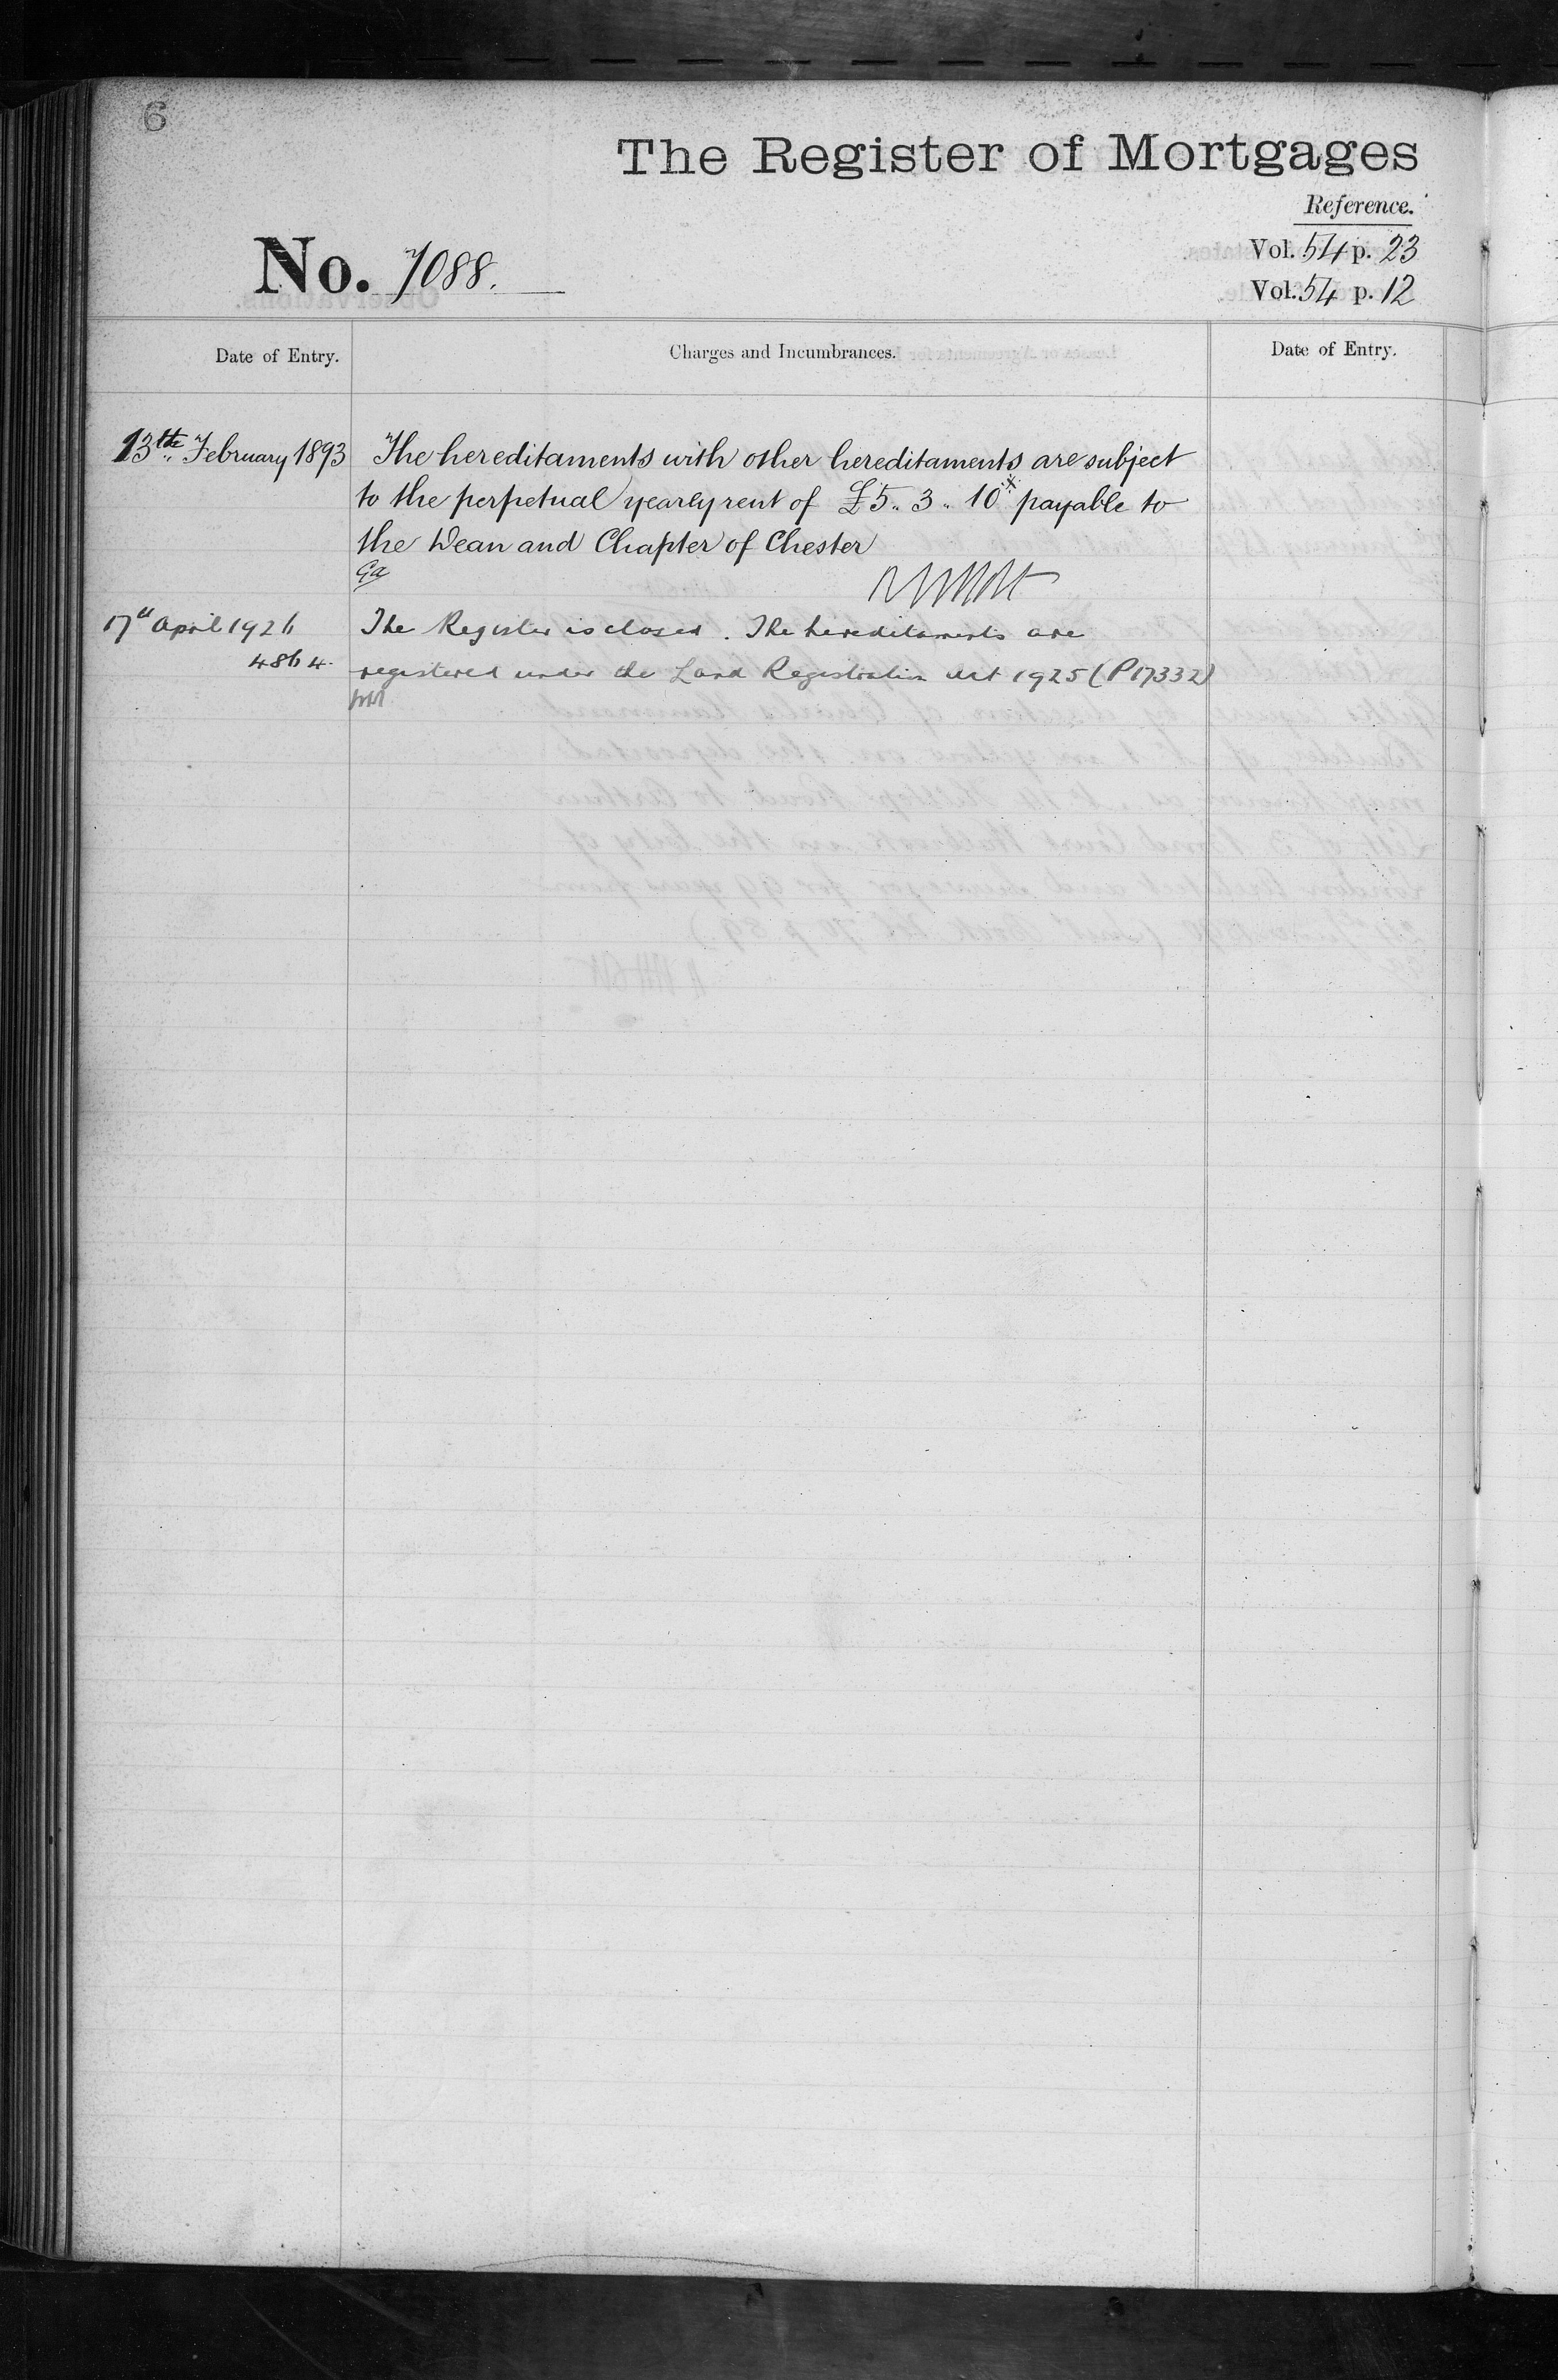 6
The Register of Mortgages
Reference.
No. 7088.
Vol. 54 p. 23
Vol. 54 p. 12
Date of Entry.
Charges and Incumbrances.
Date of Entry.
13th February 1893
The hereditaments with other hereditaments are subject
to the perpetual yearly rent of £5.. 3.. 10 payable to
the Dean and Chapter of Chester
Ga
17th April 1926
4864
The Register is closed. The hereditaments are
registered under the Land Registration Act 1925 (P17332)